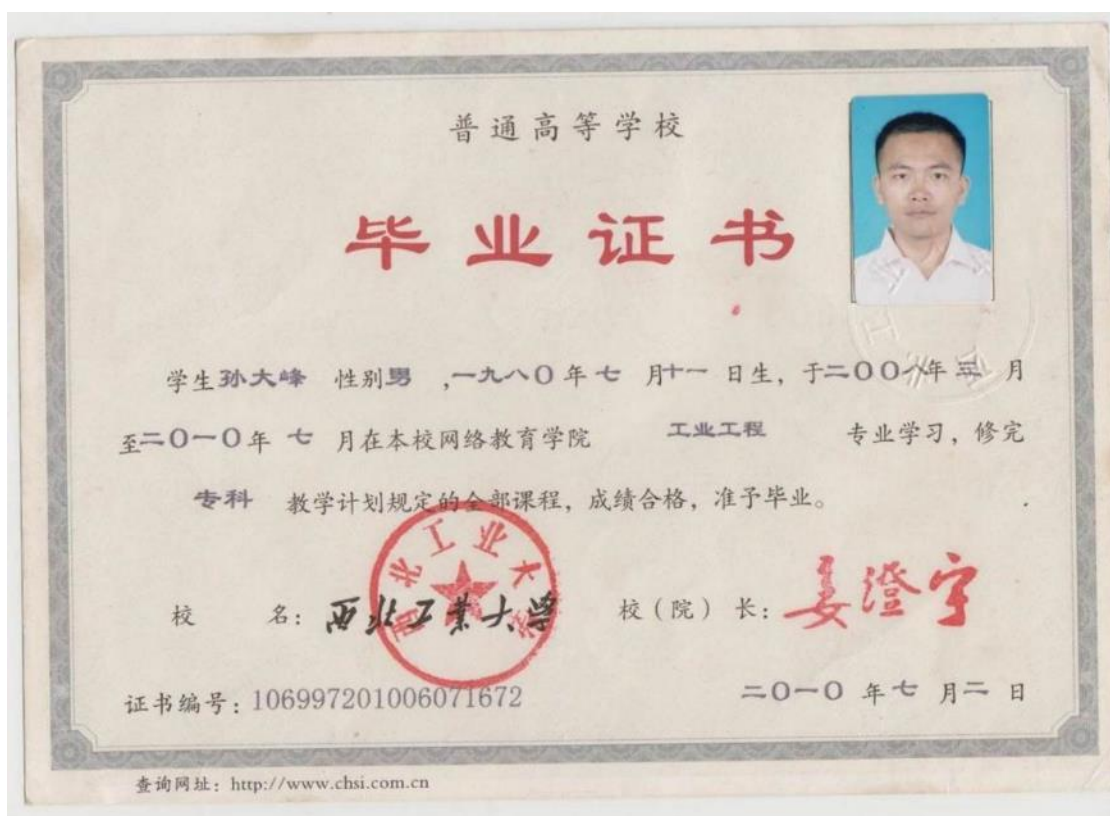 普通高等学校
毕业证书
学生孙大峰 性别男 ,一九八〇年七月十一日生，于二〇〇八年三月
至二〇一〇年七月在本校网络教育学院 工业工程 专业学习，修完
专科 教学计划规定的全部课程，成绩合格，准予毕业。
西北工业大学
校 名：学大業工北西 校（院）长：姜澄宇
证书编号：106997201006071672 二〇一〇年七月二日
查询网址：http://www.chsi.com.cn